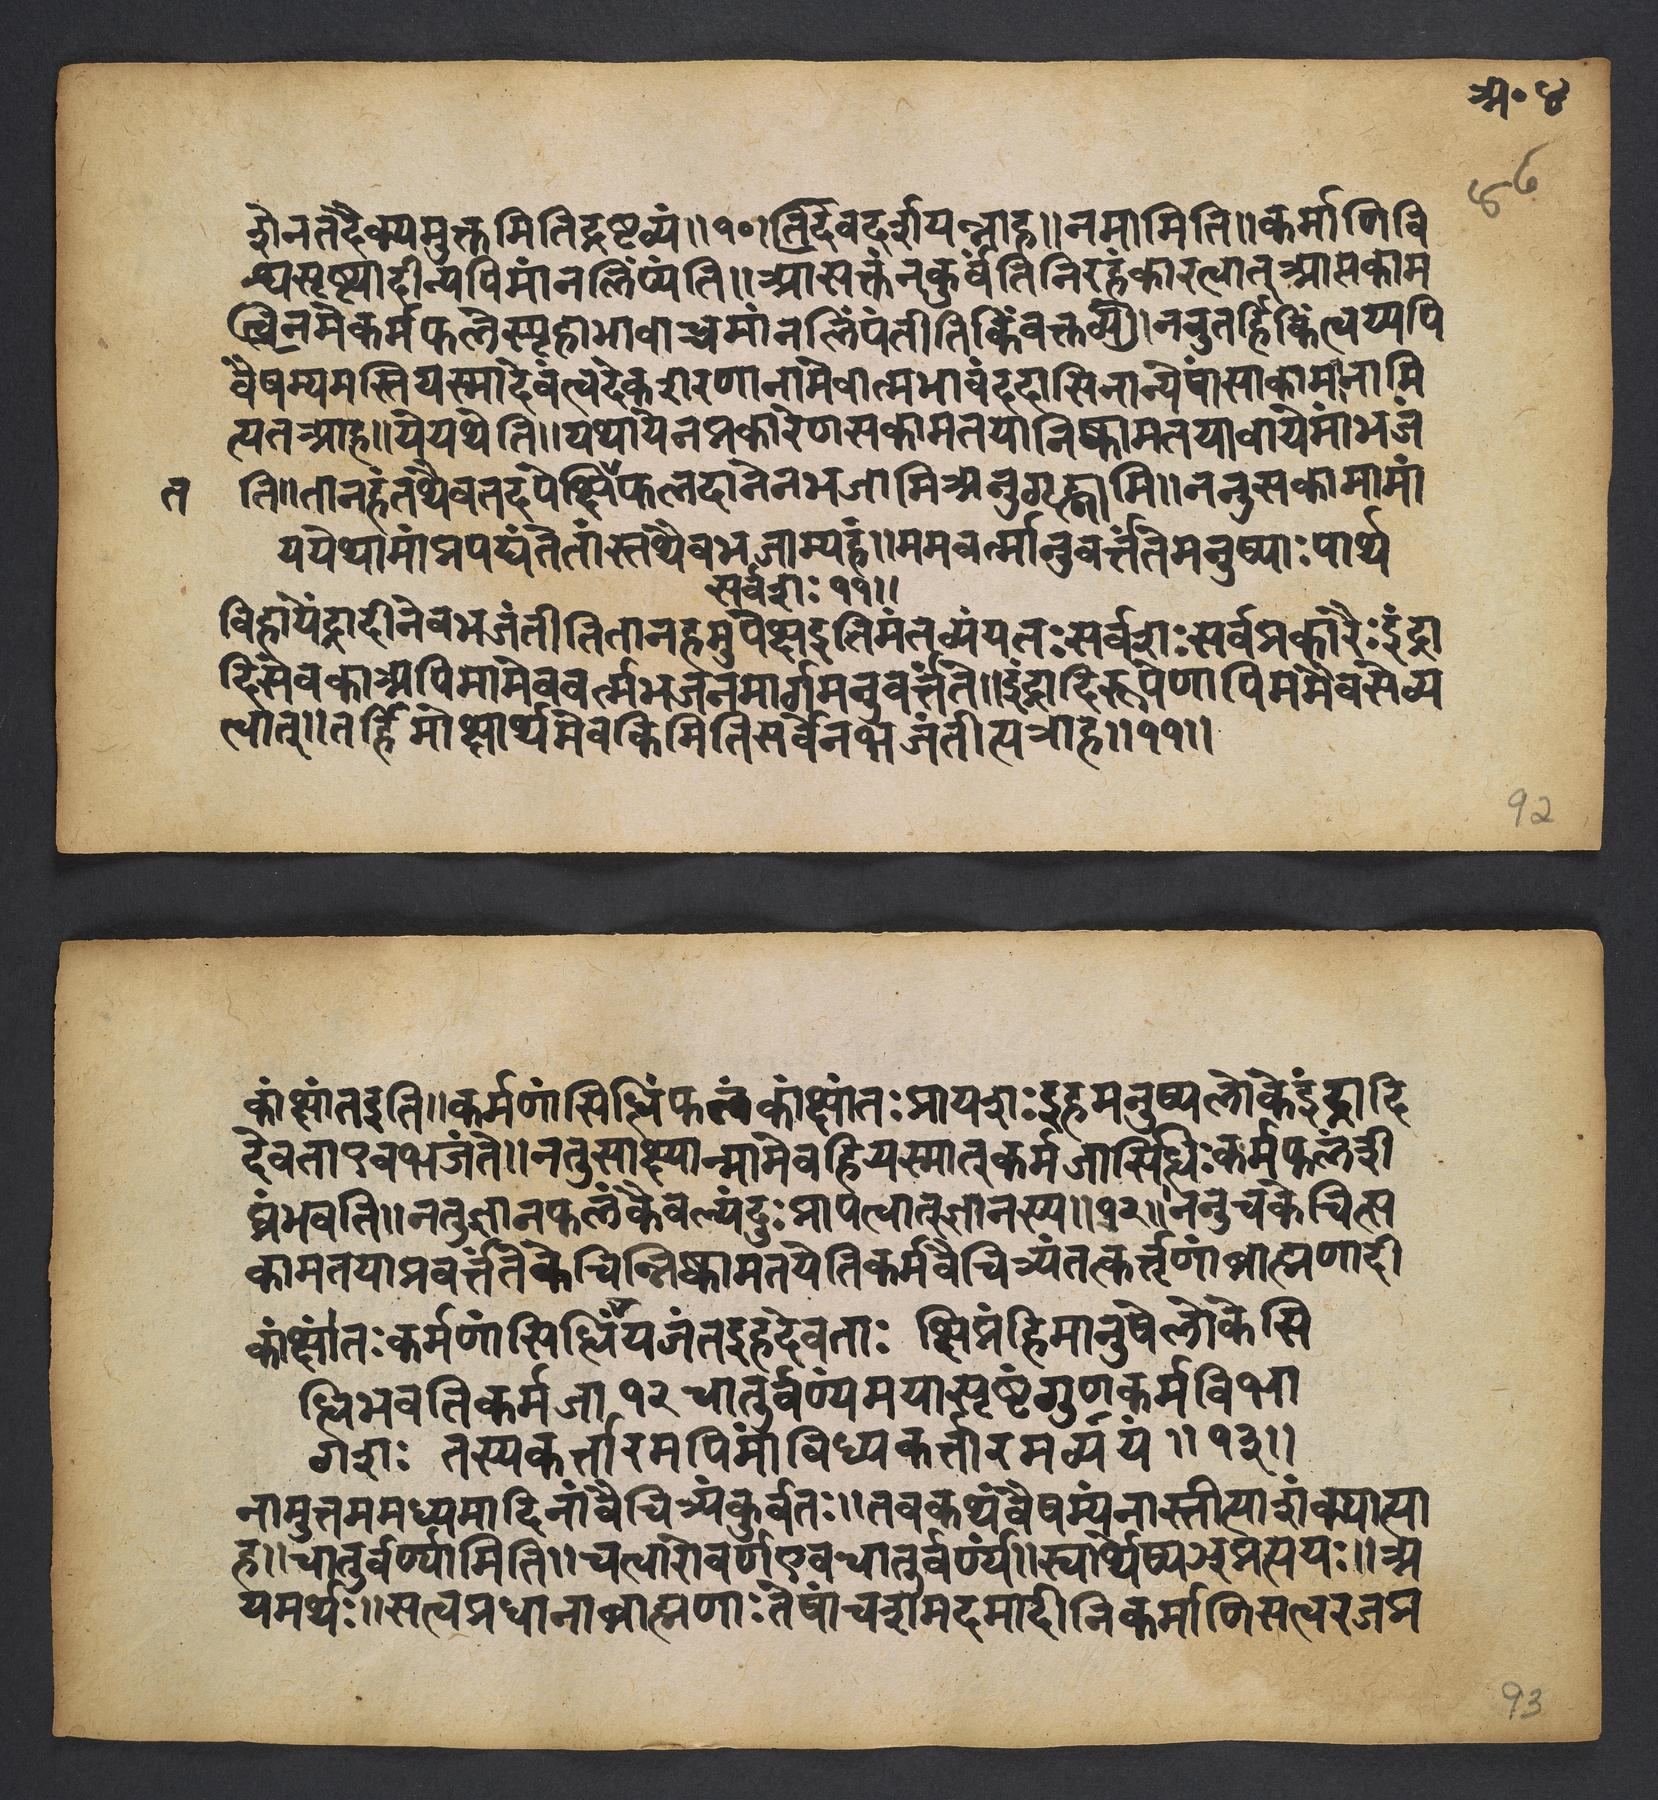 अ॰ ४
४६
शेनतदैक्यमुक्तमितिद्रष्टव्यं॥१०।तदेवदर्शयन्नाह॥नमामिति॥कर्माणिवि
श्वसृष्ट्यादीन्यपिमांनलिंप्यंति॥आसक्तंनकुर्वंतिनिरहंकारत्वात्आप्तकाम
त्वेनमेकर्मफलेस्पृहाभावाच्चमांनलिंपंतीतिकिंवक्तव्यं।ननुतर्हिकिंत्वय्यपि
वैषम्यमस्तियस्मादेवंत्वदेकशरणानामेवात्मभावंददासिनान्येषांसाकामानामि
त्यतआह॥येयथेति॥यथायेनप्रकारेणसकामतयानिष्कामतयावायेमांभजं
त
ति॥तानहंतथैवतदपेक्षिफलदानेनभजामिअनुगृह्णामि॥ननुसकामामां
येयथामांप्रपद्यंतेतांस्तथैवभजाम्यहं॥ममवर्त्मानुवर्त्तंतेमनुष्याःपार्थ
सर्वशः११॥
विहायेंद्रादीनेवभजंतीतितानहमुपेक्षइतिमंतव्यंयतःसर्वशःसर्वप्रकारैःइंद्रा
दिसेवकाअपिमामेववर्त्मभजनमार्गमनुवर्त्तंते॥इंद्रादिरूपेणापिममैवसेव्य
त्वात्॥तर्हिमोक्षार्थमेवकिमितिसर्वेनभजंतीत्यत्राह॥११॥
92
कांक्षांतइति॥कर्मणांसिद्धिंफलंकांक्षांतःप्रायशःइहमनुष्यलोकेइंद्रादि
देवताएवभजंते॥नतुसाक्ष्यान्मामेवहियस्मात्कर्मजासिद्धिःकर्मफलंशी
घ्रंभवति॥नतुज्ञानफलंकैवल्यंदुःप्रापत्वात्ज्ञानस्य॥१२॥ननुचकेचित्स
कामतयाप्रवर्त्तंतेकेचिन्निष्कामतयेतिकर्मवैचित्र्यंतत्कर्त्तृणांब्राह्मणादी
कांक्षांतःकर्मणांसिद्धिंयजंतइहदेवताः क्षिप्रंहिमानुषेलोकेसि
द्धिभवतिकर्मजा १२ चातुर्वर्ण्यंमयासृष्टंगुणकर्मविभा
गशः तस्यकर्त्तारमपिमांविध्यकर्त्तारमव्ययं ॥१३॥
नामुत्तममध्यमादिनांवैचित्र्यंकुर्वतः॥तवकथंवैषम्यंनास्तीत्याशंक्यात्या
ह॥चातुर्वर्ण्यामिति॥चत्वारोवर्णएवचातुर्वर्ण्यं॥स्वार्थेष्यञ्प्रत्ययः॥अ
यमर्थः॥सत्वप्रधानाब्राह्मणाःतेषांचशमदमादीनिकर्माणिसत्वरजप्र
93